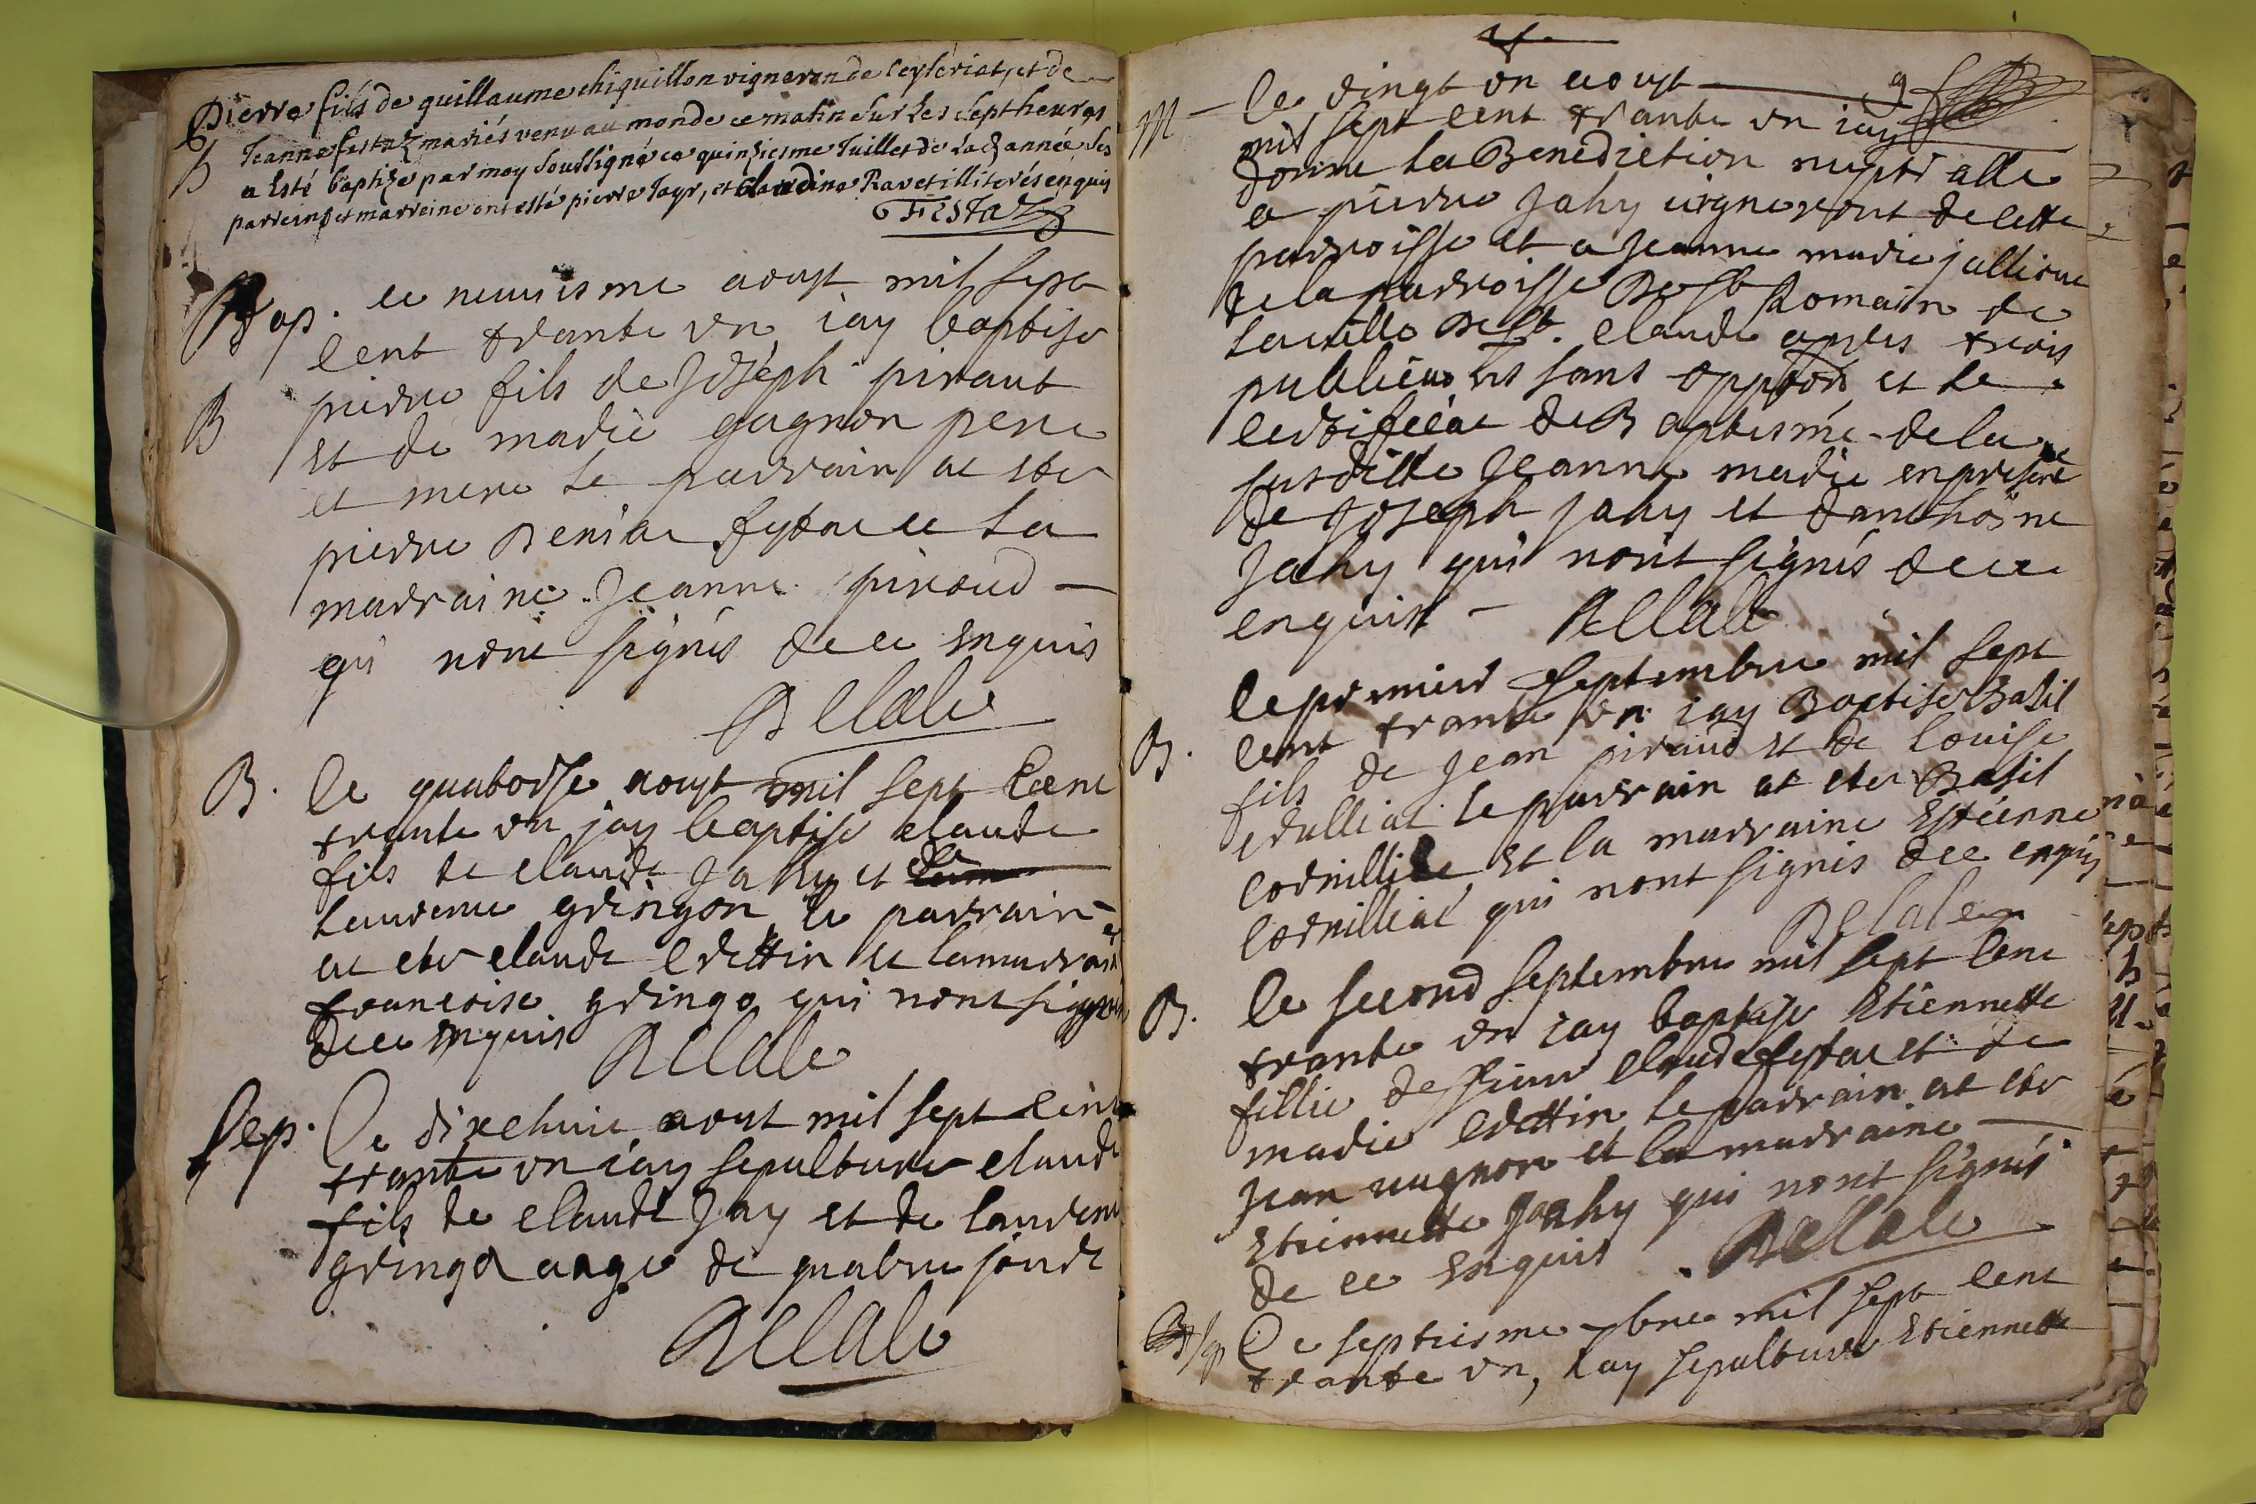 Pierre fils de guillaume chiquillon vigneron de Ceyseriat, et de
Jeanne festaz mariés venu au monde ce matin sur Les sept heures
B
a esté baptize par moy soussigné ce quinziesme Juillet de la d. année Les
parrein et marreine ont esté pierre Jayr, et Claudine Ravet illiterés enquis
FESTAZ
Bap. ce neuvisme aoust mil sept
cent trante un iay baptise
B pierre fils de Joséph piraut
et de marie gagnon pere
et mere le parrain at ete
pierre Deniae fytae et la
marraine Jeanne piroud
qui nont signés de ce enquis
Rellale
B. le quatorse aoust mil sept cent
trante un jay baptise claude
fils de claude Jahy et
laurence gringon le parrain
at ete claude Crettin et la marrai
francoise gringo qui nont signes
de ce enquis Rellale
Sep. Ce dixehuit aout mil sept cent
trante un iay sepulture claude
fils de claude Jay et de laurence
gringo aage de quatre jours
Rellale
M le vingt un aoust
mil sept cent trante un iay
donne la Benediction nuptialle
a pierre Jahy vigneront de cette
parroisse et a Jeanne marie jullione
de la parroisse De St Romain de
la ville De St. Claude apres trois
publica͠ons sans oppo͠on et le
certificat de Baptesme de la
susditte Jeanne marie en presence
de Joseph Jahy et danthoine
Jahy qui nont signés de ce
enquist Rellale
le premier septembre mil sept
B. cent trante un iay Baptise Basil
fils de Jean piraud et de louise
crulliat le parrain at ete Basil
cornilliat et la marraine Estienne
cornilliat qui nont signés de ce enquis
Rellale
B. le second septembre mil sept cent
trante un iay baptise Etiennette
fillie de sieur claude fytae et de
marie Crettin le parrain at ete
Jean uugnon et la marraine
Etiennette Jahy qui nont signés
de ce enquist . Rellale
Sep Ce septiesme 7bre mil sept cent
trante un, iay sepulture Etiennette